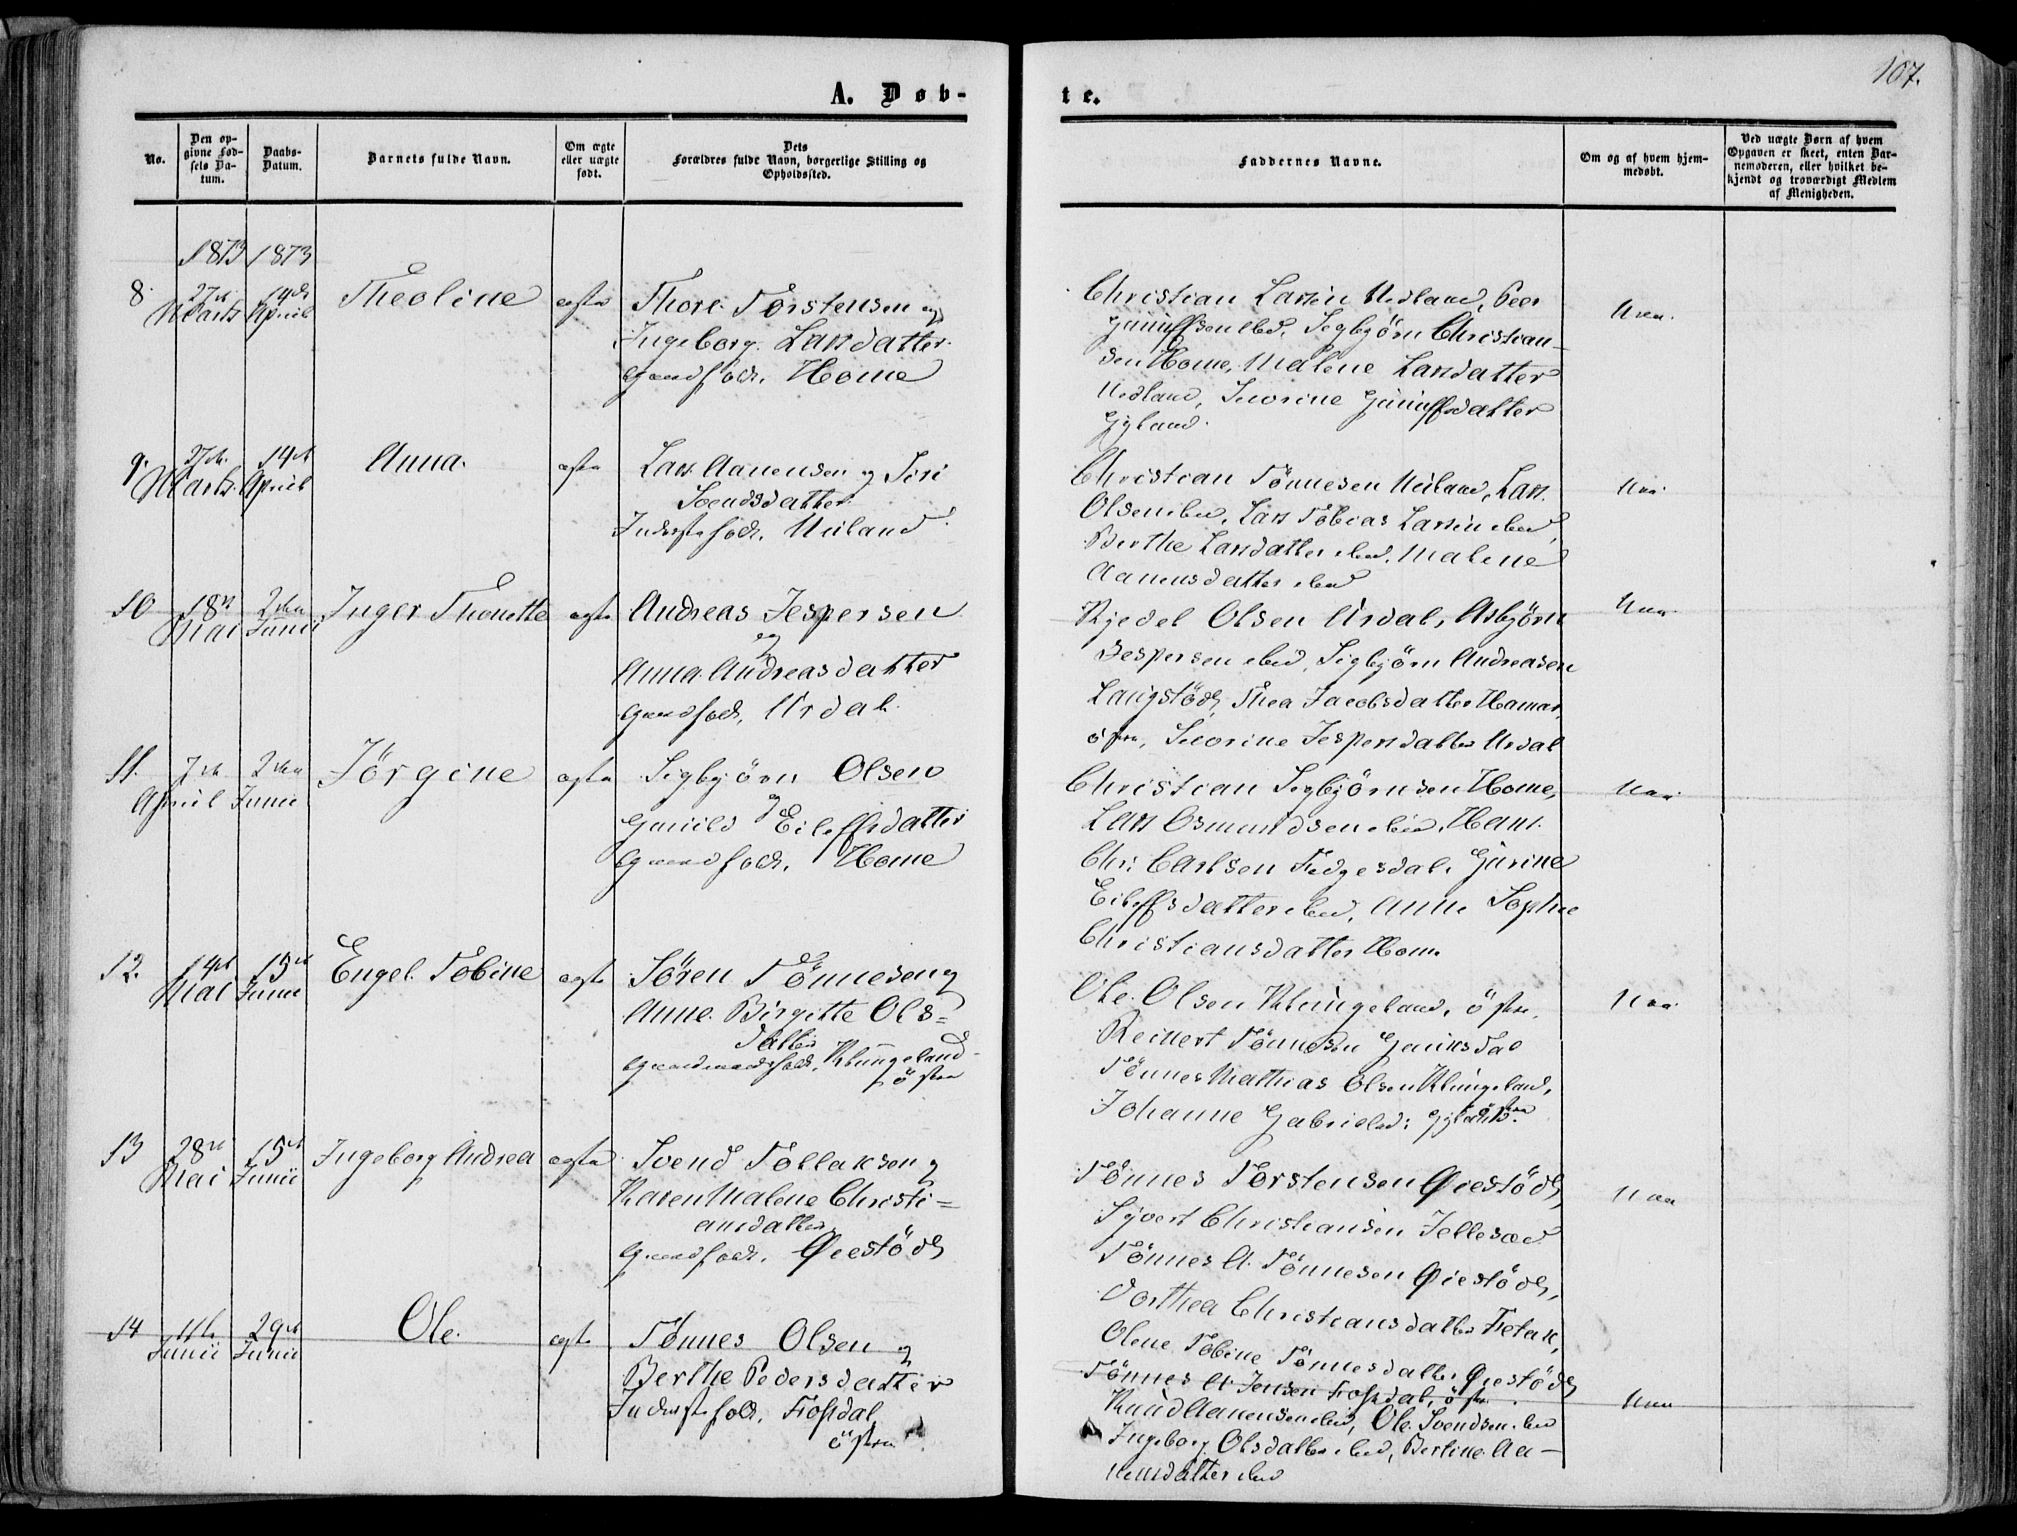 107.
A. Døb-
te.
No.
Den op-
givne Fød-
sels Da-
tum.
Daabs-
Datum.
Barnets fulde Navn.
Om ægte
eller uægte
født.
Dets
Forældres fulde Navn, borgerlige Stilling og
Opholdssted.
Faddernes Navne.
Om og af hvem hjem-
medøbt.
Ved uægte Børn af hvem
Opgaven er skeet, enten Bar-
nemoderen, eller hvilket be-
kjendt og troværdigt Medlem
af Menigheden.
1873 1873
8. 27de Marts 14de April Theoline ægte
Thore Torstensen og
Ingeborg Larsdatter
Gaardfolk, Home
Christian Larsen Nedland, Peer
ebd, Segbjørn Christian-
sen Home, Malene Larsdatter
Nedland, Severine
Gyland.
9. 27de Marts 14de April Anna. ægte
Lars Aanensen og Siri
Svendsdatter
Inderstefolk, Neiland
Christian Tönnesen Neiland, Lars
Olsen ebd, Lars Tobias Larsen ebd,
Berthe Larsdatter ebd, Malene
Aanensdatter ebd
10 18de Mai 2den Junii Inger Thonette ægte
Andreas Jespersen
og
Anna Andreasdatter
Gaardfolk, Urdal.
Kjedel Olsen Urdal, Asbjörn
Jespersen ebd, Sigbjørn Andreasen
Langstöd, Thea Jacobsdatter Hamar,
östre, Severine Jespersdatter Urdal
11. 7de April 2den Junii Jörgine ægte
Sigbjörn Olsen
og
Gunild Eileffsdatter
Gaardfolk, Home
Christian Segbjörnsen Home,
Lars Osmundsen ebd, Hans
Chr. Carlsen Fedgesdal, Gurine
Eileffsdatter ebd, Anne Sophie
Christiansdatter Home
12. 14de Mai 15de Junii Engel Tobine ægte
Sören Tönnesen og
Anne Birgitte Ols=
datter
Gaardmandsfolk, Klungeland
östre
Ole Olsen Klungeland, östre,
Reinert Tönnesen
Tönnes Mathias Olsen Klungeland,
Johanne Gabrielsd: Gyland östre.
13 28de Mai 15de Junii Ingeborg Andrea ægte
Svend Tollaksen og
Karen Malene Christi=
ansdatter
Gaardfolk, Øiestöd
Tönnes Torstensen Øiestöd,
Syvert Christiansen Jellesæd
Tönnes A. Tönnesen Øiestöd,
Dorthea Christiansdatter
Olene Tobine Tönnesdatter Øiestöd
14 11te Junii 29de Junii Ole. ægte
Tönnes Olsen og
Berthe Pedersdatter
Inderstefolk, Fossdal
östre
Tönnes A. Jensen Fossdal, östre.
Knud Aanensen ebd, Ole Svendsen ebd
Ingeborg Olsdatter ebd, Berline Aa-
nensdatter ebd